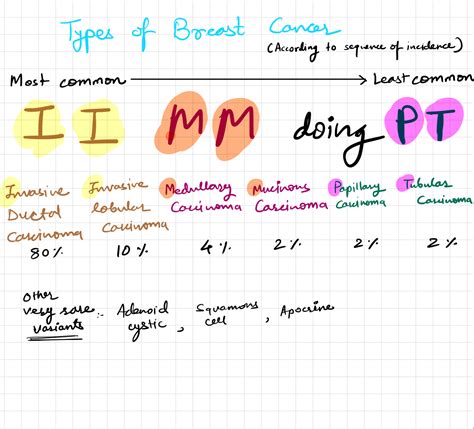 Types of Breast Cancer
(According to sequence of incidence)
Most common → Least common
I I M M doing P T
Invasive Ductal Carcinoma
Invasive lobular Carcinoma
Medullary Carcinoma
Mucinous Carcinoma
Papillary Carcinoma
Tubular Carcinoma
80% 10% 4% 2% 2% 2%
Other
very rare
variants :- Adenoid cystic, Squamous cell, Apocrine